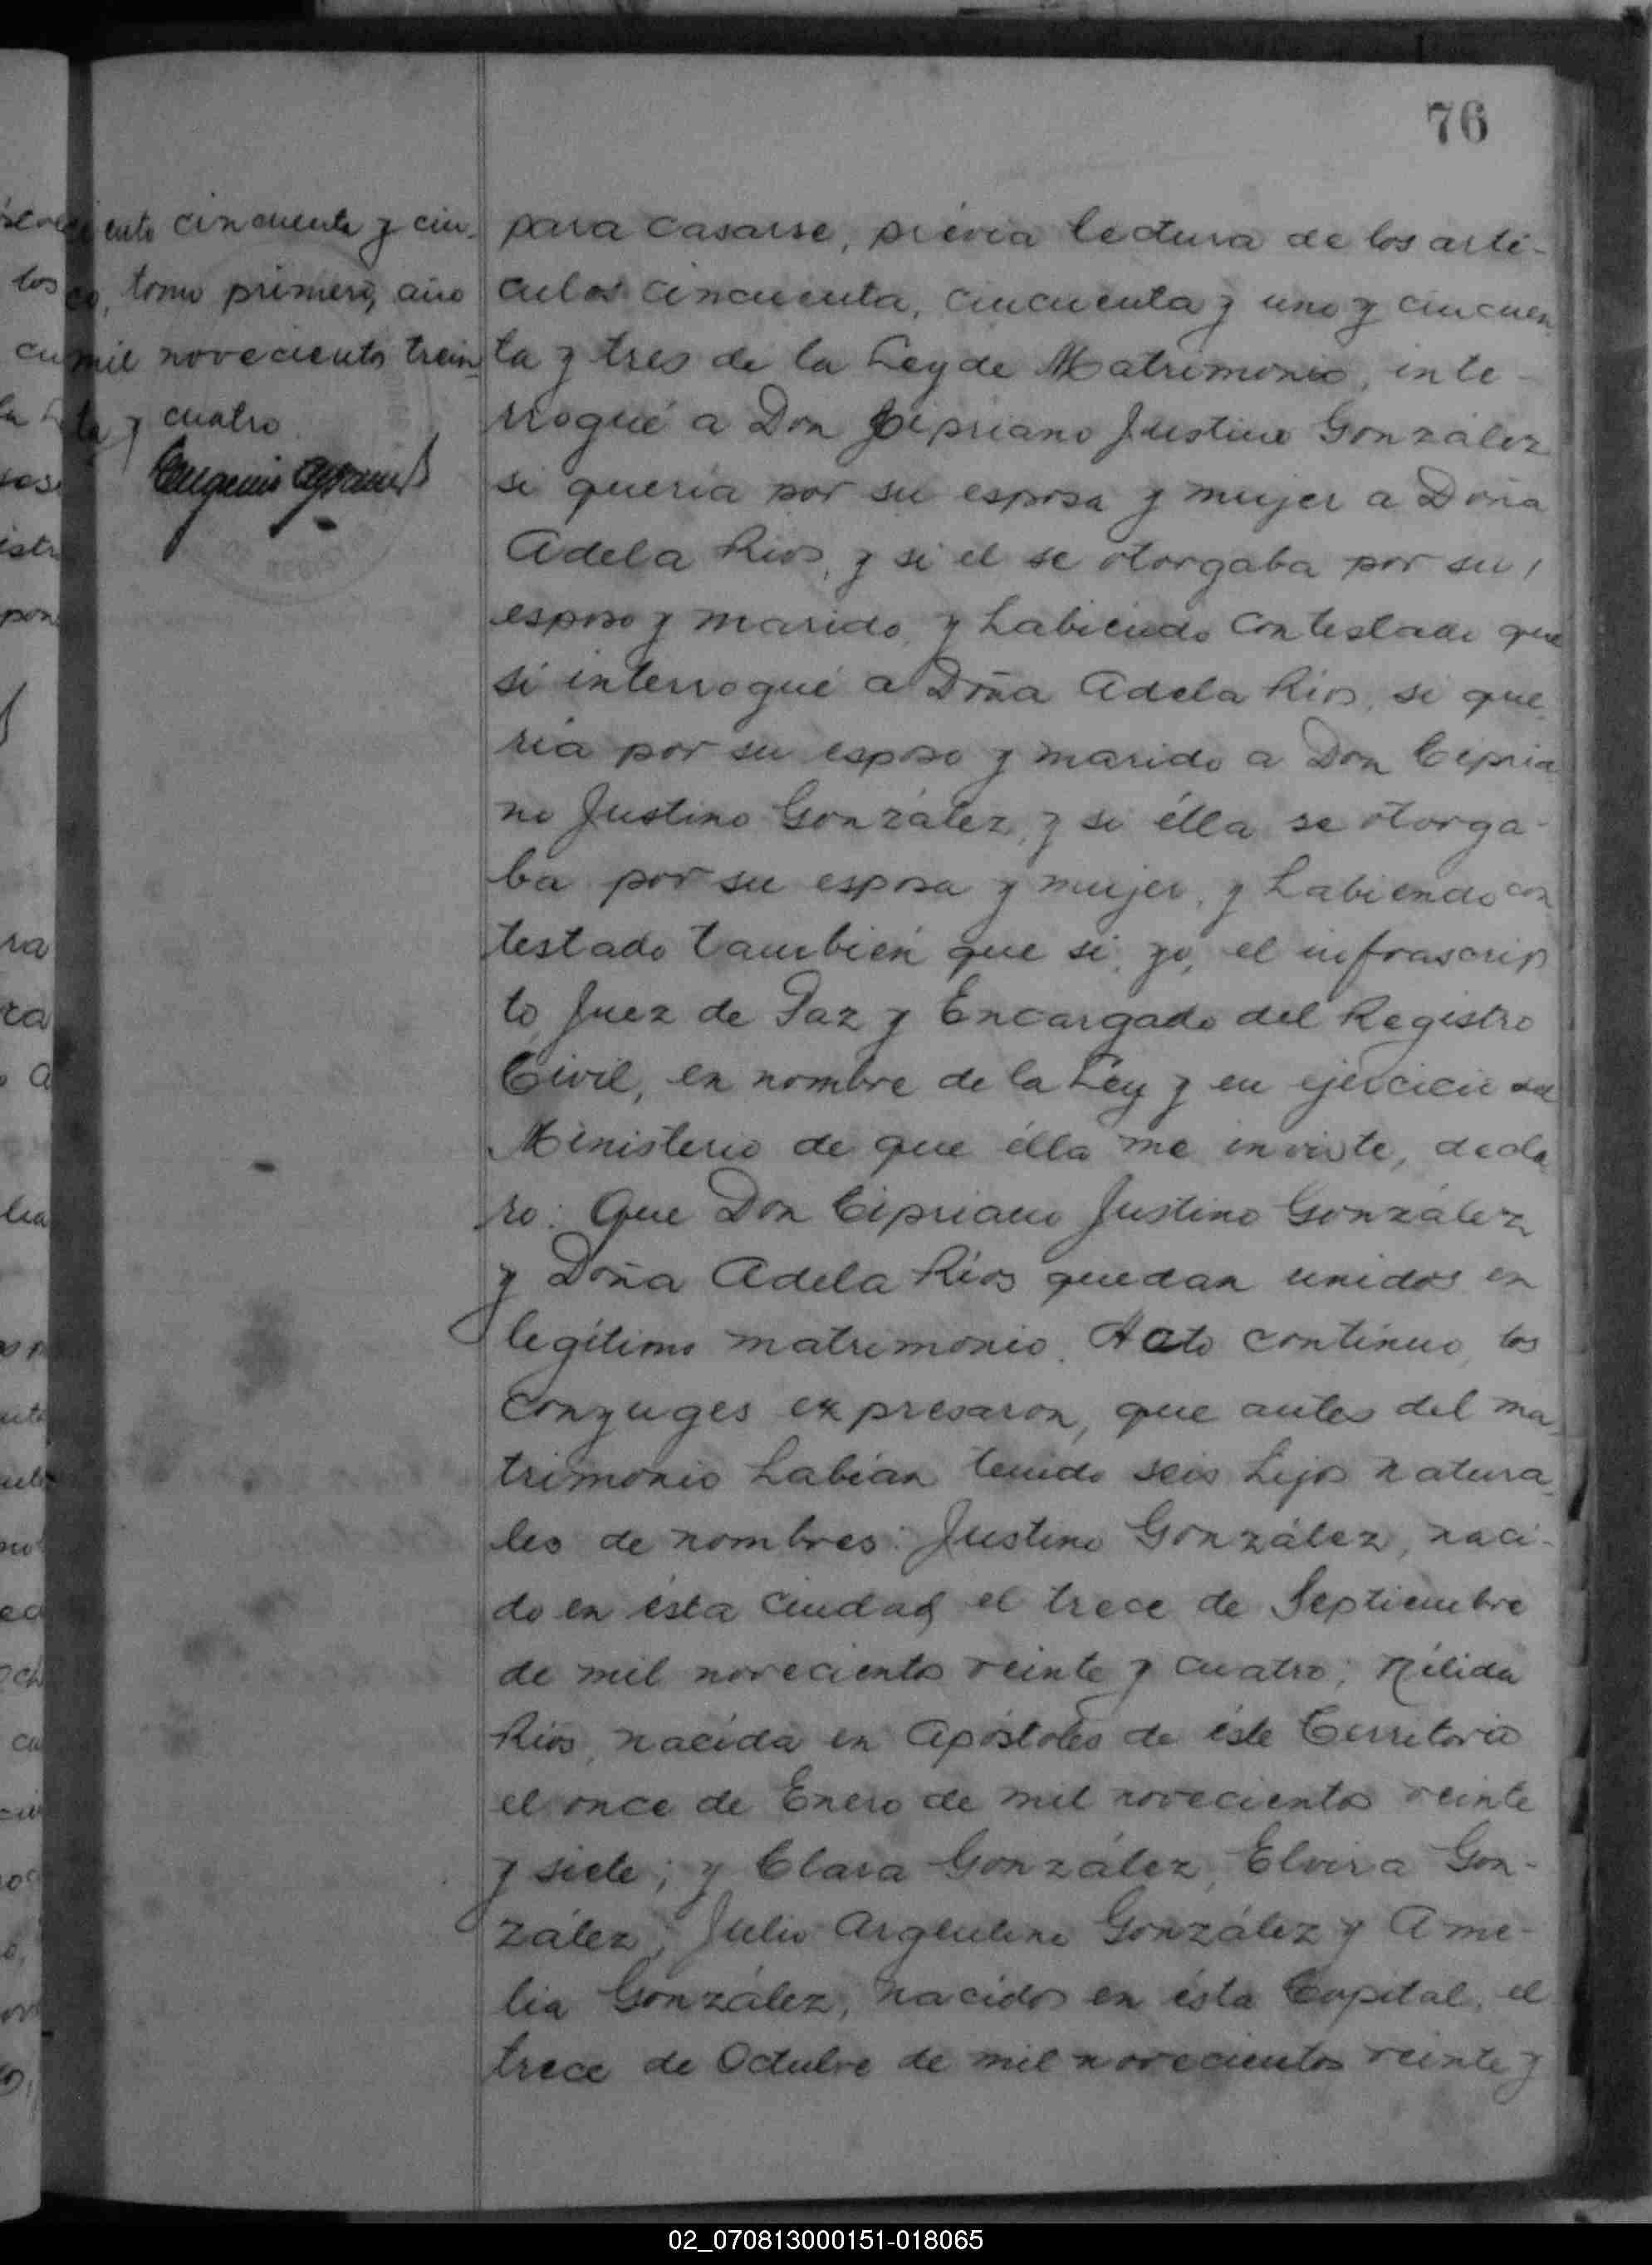 76
ciento cincuenta y cin-
co, tomo primero, año
mil novecientos trein-
ta y cuatro.
para casarse, prévia lectura de los artí-
culos cincuenta, cincuenta y uno y cincuen
ta y tres de la Ley de Matrimonio, inte-
rrogué a Don Cipriano Justino González
si quería por su esposa y mujer a Doña
Adela Rios, y si el se otorgaba por su
esposo y marido, y habiendo contestado que
si interrogué a Doña Adela Rios, si que
ría por su esposo y marido a Don Cipria
no Justino González, y si élla se otorga-
ba por su esposa y mujer, y habiendo con
testado también que si, yo, el infrascrip
to, Juez de Paz y Encargado del Registro
Civil, en nombre de la Ley y en ejercicio del
Ministerio de que élla me inviste, decla
ro: Que Don Cipriano Justino González
y Doña Adela Ríos quedan unidos en
legítimo matrimonio. Acto contínuo, los
conyuges expresaron, que antes del ma
trimonio habían tenido seis hijos natura
les de nombres: Justino González, naci-
do en ésta ciudad el trece de Septiembre
de mil novecientos veinte y cuatro; Nélida
Ríos, nacida en Apóstoles de éste Territorio
el once de Enero de mil novecientos veinte
y siete; y Clara González, Elvira Gon-
zález, Julio Argentino González y Ame-
lia González, nacidos en ésta Capital, el
trece de Octubre de mil novecientos veinte y
02_070813000151-018065